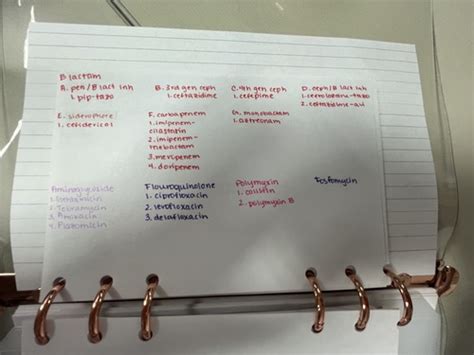 B lactam
A. pen/B lact inh
1. pip-tazo
B. 3rd gen ceph
1. ceftazidime
C. 4th gen ceph
1. cefepime
D. ceph/B lact inh
1. ceftolozane-tazo
2. ceftazidime-avi
E. siderophore
1. cefidericol
F. carbapenem
1. imipenem-
cilastatin
2. imipenem-
relebactam
3. meropenem
4. doripenem
G. monobactam
1. aztreonam
Aminoglycoside
1. Gentamicin
2. Tobramycin
3. Amikacin
4. Plazomicin
Flouroquinolone
1. ciprofloxacin
2. levofloxacin
3. delafloxacin
Polymyxin
1. colistin
2. polymyxin B
Fosfomycin